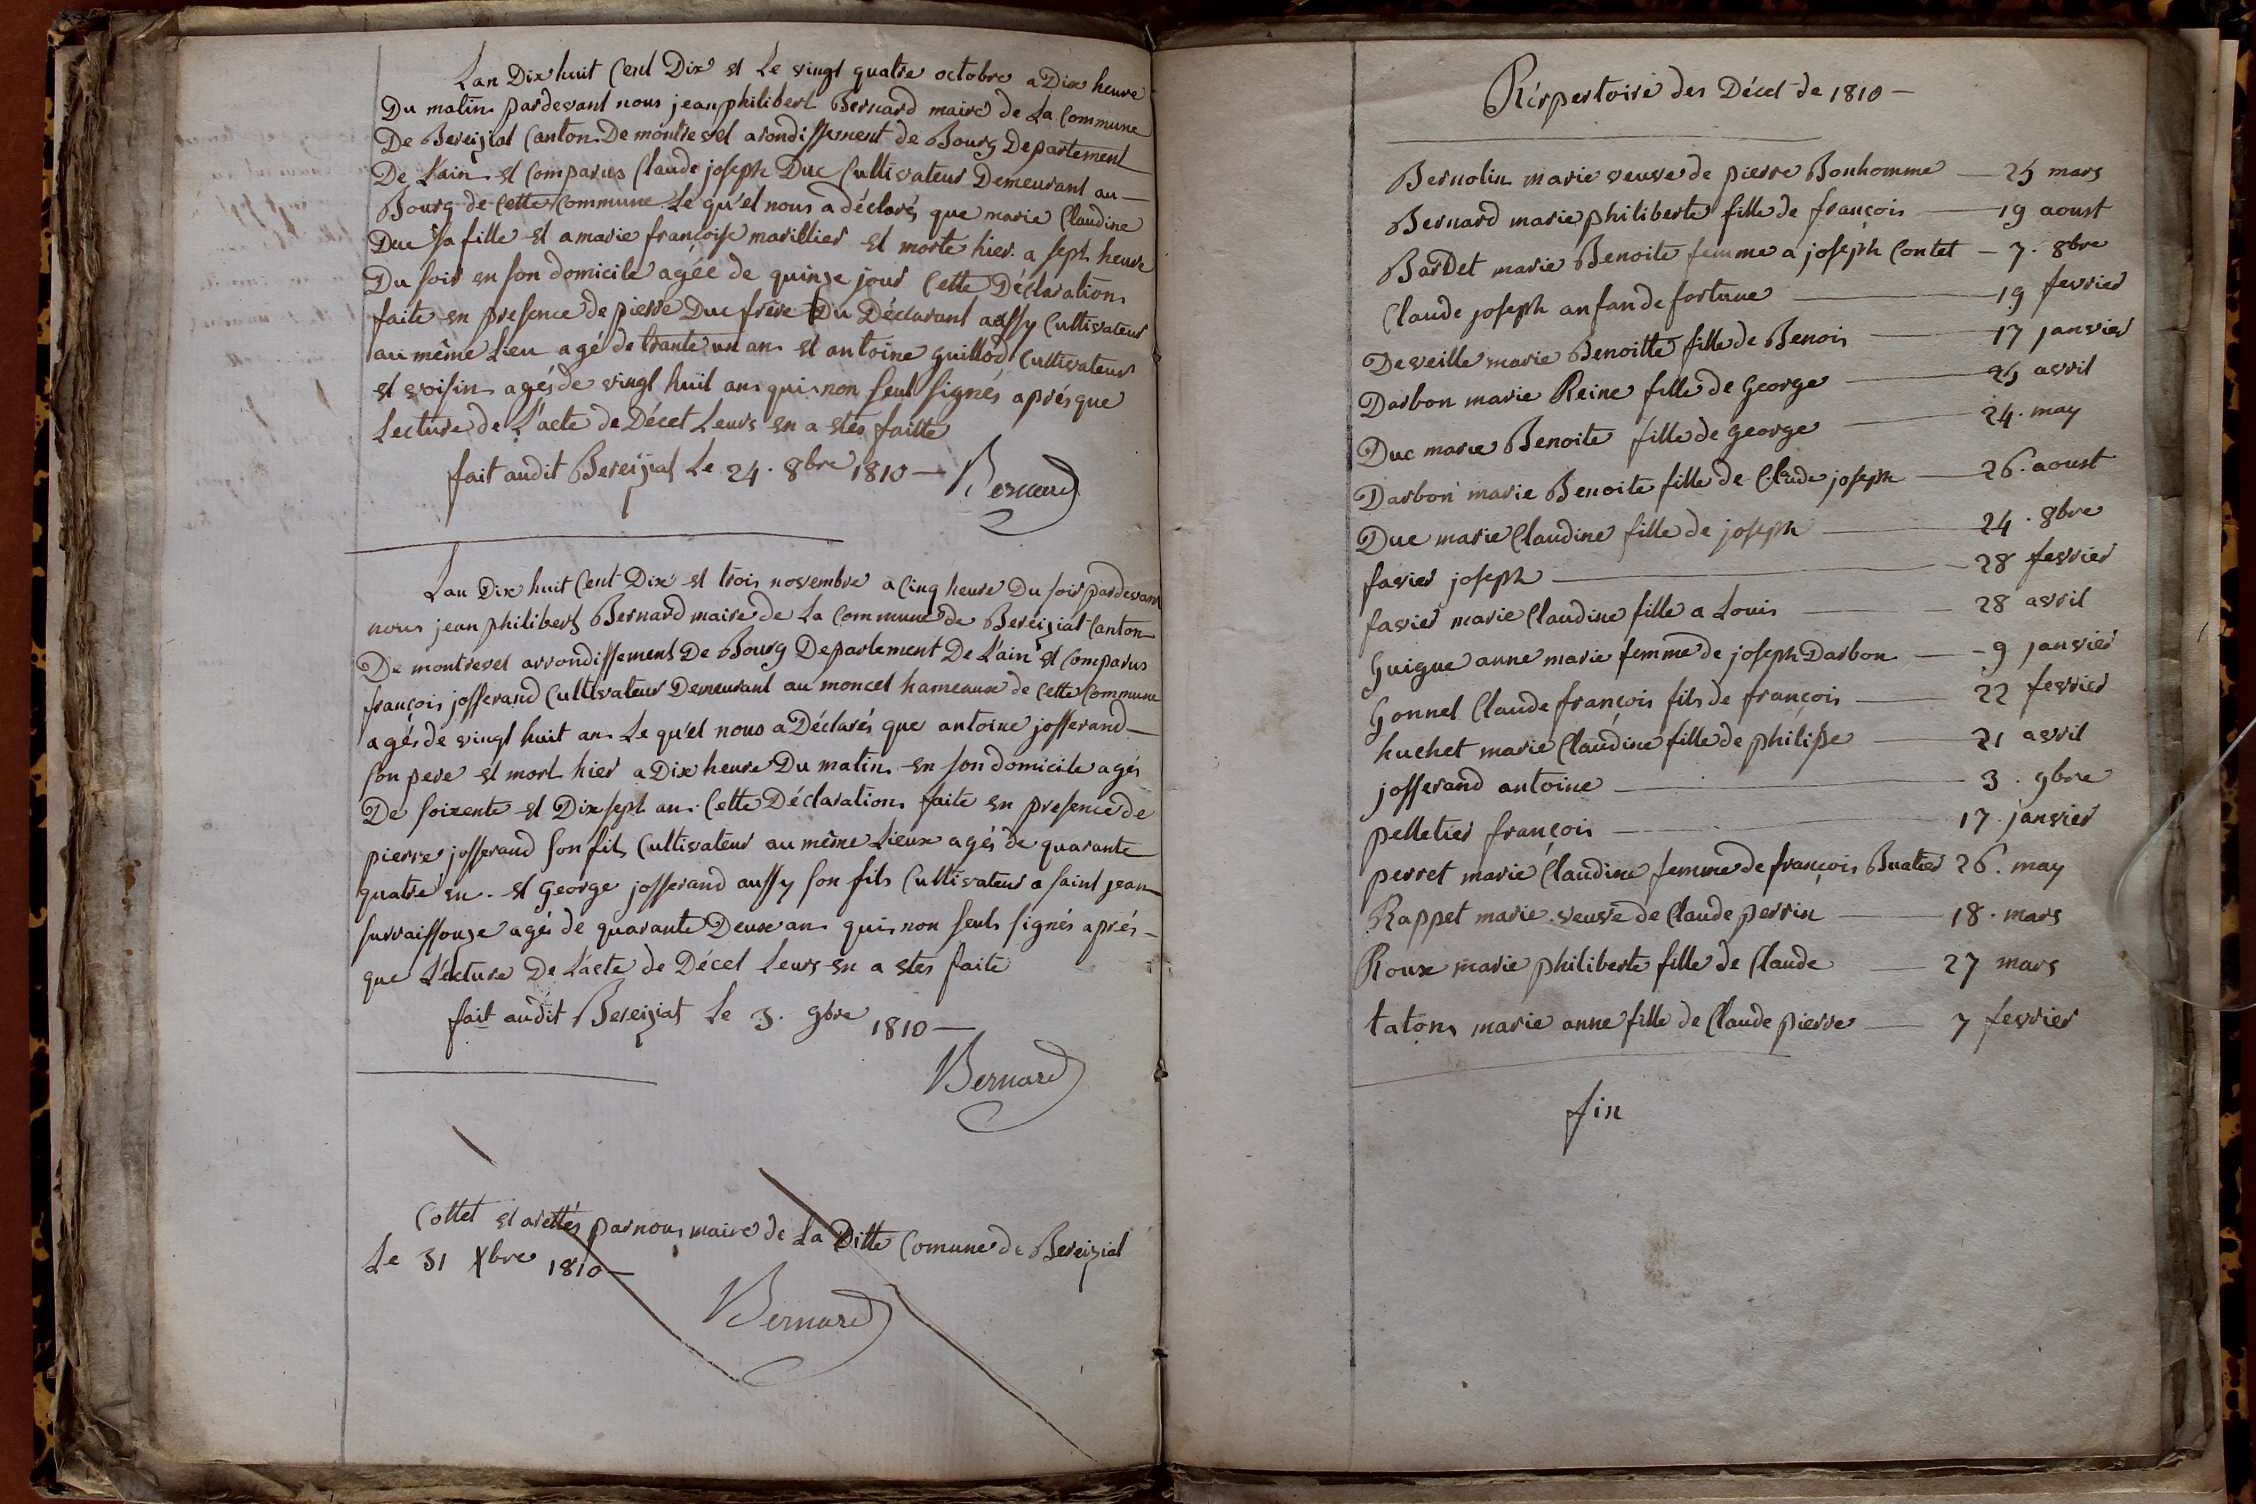 Lan Dix huit Cent Dix et Le vingt quatre octobre a Dix heure
Du matin pardevant nous jean philibert Bernard maire de La Commune
De Bereiziat Canton De montrevel arondissement de Bourg Departement
De L'ain et Comparus Claude joseph Duc Cultivateur Demeurant au
Bourg de Cette Commune Le qu'el nous a déclarés que marie Claudine
Duc sa fille et a marie françoise marillier et morte hier a sept heure
Du soir en son domicile agée de quinze jour Cette Déclaration
faite en presence de pierre Duc frère Du Déclarant aussy Cultivateur
au même Lieu agé de trante un an et antoine guillod Cultivateur
et voisin agés de vingt huit an qui non seut signés aprés que
Lecture de L'acte de Décet Leurs en a etes faitte
fait audit Bereiziat Le 24. 8bre 1810 Bernard
Lan Dix huit Cent Dix et trois novembre a Cinq heure Du soir pardevant
nous jean philibert Bernard maire de La Commune de Bereiziat Canton
De montrevel arrondissement De Bourg Departement De L'ain et Comparus
françois josserand Cultivateur Demeurant au moncel hameaux de Cette Commune
agés de vingt huit an Le qu'el nous a Déclarés que antoine josserand
son pere et mort hier a Dix heure Du matin en son domicile agés
De soixente et Dix sept an. Cette Déclaration faite en presence de
pierre josserand son fils Cultivateur au même Lieux agés de quarante
quatre en. et George josserand aussy son fils Cultivateur a saint jean
surraissouze agés de quarante Deux an qui non seuls signés aprés
que L'ecture De L'acte de Décet Leurs en a etes faite
fait audit Bereiziat Le 3. 9bre 1810
Bernard
Cottet et arettés par nous maire de La Ditte Comune de Bereiziat
Le 31 Xbre 1810
Bernard
Rérpertoire des Décet de 1810
Bernolin marie veuve de pierre Bonhomme 25 mars
Bernard marie philiberte fille de françois 19 aoust
Bardet marie Benoite femme a joseph Contet 7. 8bre
Claude joseph anfan de fortune 19 fevrier
Deveille marie Benoitte fille de Benois 17 janvier
Darbon marie Reine fille de George 25 avril
Duc marie Benoite fille de George 24. may
Darbon marie Benoite fille de Claude joseph 26. aoust
Duc marie Claudine fille de joseph 24. 8bre
favier joseph 28 fevrier
favier marie Claudine fille a Louis 28 avril
Guigue anne marie femme de joseph Darbon 9 janvier
Gonnel Claude françois fils de françois 22 fevrier
huchet marie Claudine fille de philipe 21 avril
josserand antoine 3. 9bre
pelletier françois 17 janvier
perret marie Claudine femme de françois Buatier 26. may
Rappet marie veuve de Claude perrin 18. mars
Roux marie philiberte fille de Claude 27 mars
taton marie anne fille de Claude pierre 7 fevrier
fin